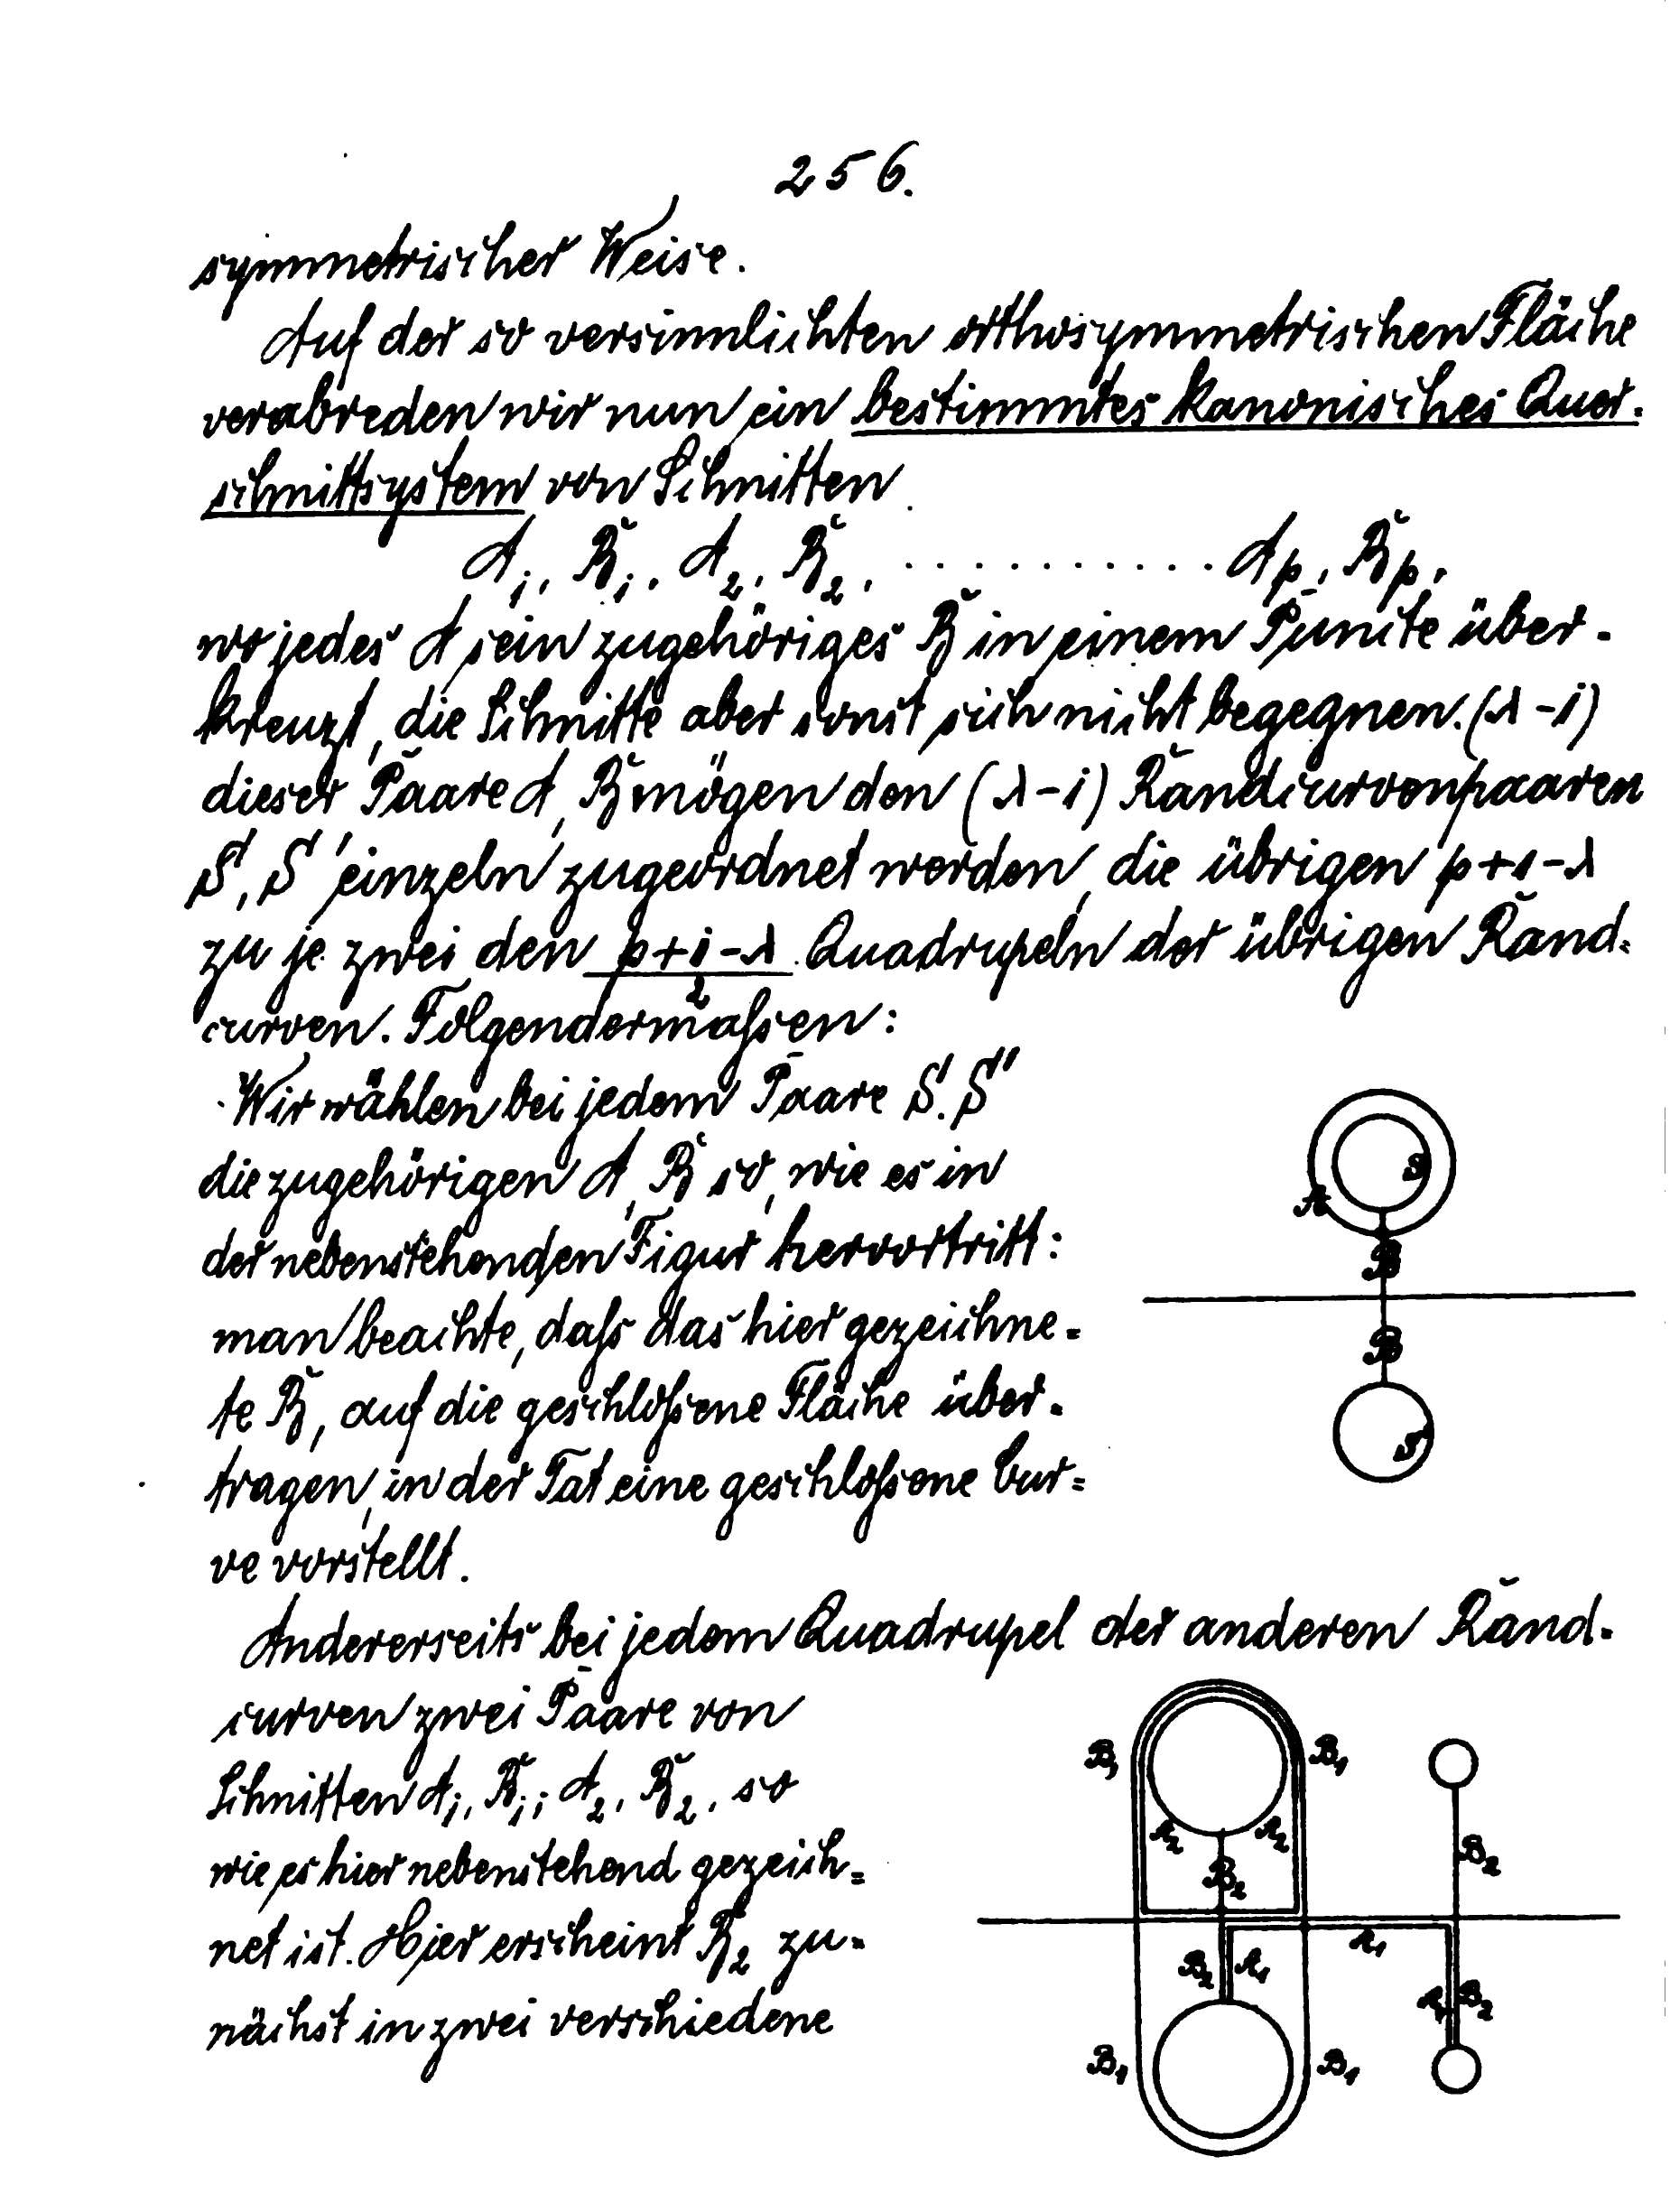 256.
symmetrischer Weise.
Auf der so versinnlichten orthosymmetrischen Fläche
verabreden wir nun ein bestimmtes kanonisches Quer-
schnittsystem von Schnitten
A₁, B₁, A₂, B₂, ........... Ap, Bp,
wo jedes A sein zugehöriges B in einem Puncte über-
kreuzt, die Schnitte aber sonst sich nicht begegnen. (λ-1)
dieser Paare A, B mögen den (λ-1) Randcurvenpaaren
S, S' einzeln zugeordnet werden, die übrigen p+1-λ
zu je zwei den (p+1-λ)/2 Quadrupeln der übrigen Rand-
curven. Folgendermaßen:
Wir wählen bei jedem Paare S, S'
die zugehörigen A, B so, wie es in
der nebenstehenden Figur hervortritt:
man beachte, daß das hier gezeichne-
te B, auf die geschloßene Fläche über-
tragen, in der Tat eine geschloßene Cur-
ve vorstellt.
Andererseits bei jedem Quadrupel der anderen Rand-
curven zwei Paare von
Schnitten A₁, B₁; A₂, B₂, so
wie es hier nebenstehend gezeich-
net ist. Hier erscheint B₂ zu-
nächst in zwei verschiedene
S
A
B
B
S'
B₁
B₁
A₂
A₂
B₂
B₂
A₁
B₂
A₁
A₁
B₂
B₁
B₁